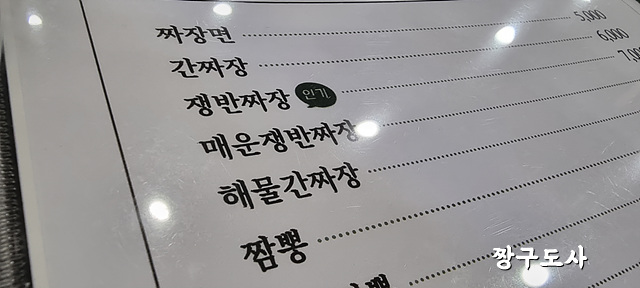 짜장면 5,000
간짜장 6,000
쟁반짜장 인기
매운쟁반짜장
해물간짜장
짬뽕
짱구도사